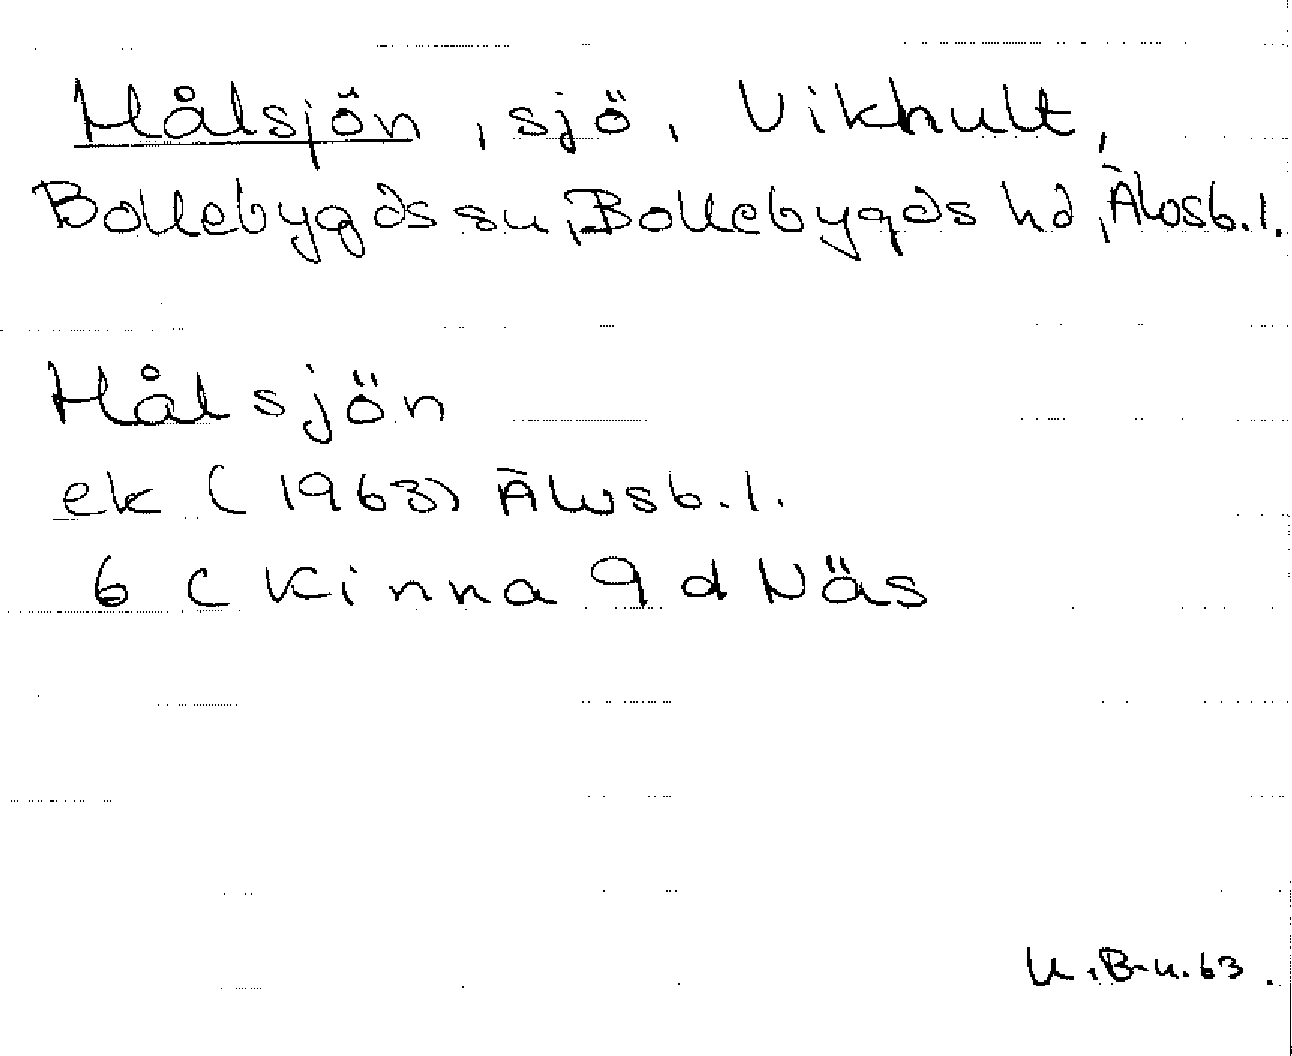 Hålsjön, sjö, Vikhult,
Bollebygds sn, Bollebygds hd, Älvsb.l.
Hålsjön
ek (1963) Älvsb.l.
6 C Kinna 9 d Näs